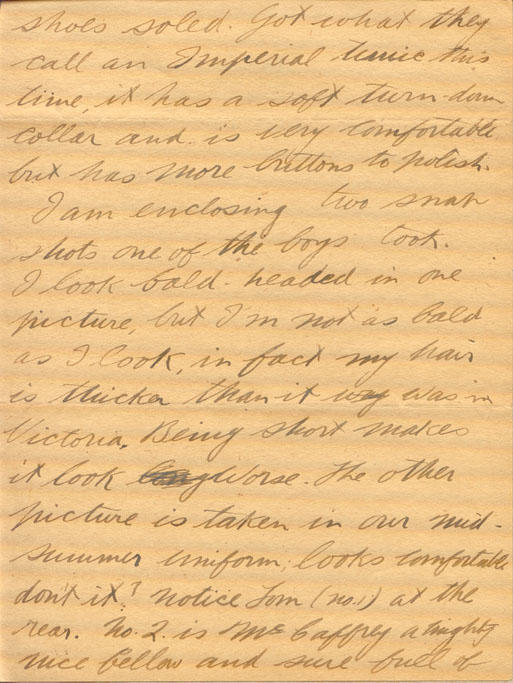 shoes soled. Got what they
call an Imperial tunic this
time, it has a soft turn-down
collar and is very comfortable
but has more buttons to polish.
I am enclosing two snap
shots one of the boys took.
I look bald-headed in one
picture, but I'm not as bald
as I look, in fact my hair
is thicker than it was in
Victoria. Being short makes
it look worse. The other
picture is taken in our mid-
summer uniform; looks comfortable
don't it? notice Tom (no.1) at the
rear. No. 2. is McCaffrey a mighty
nice fellow and sure full of